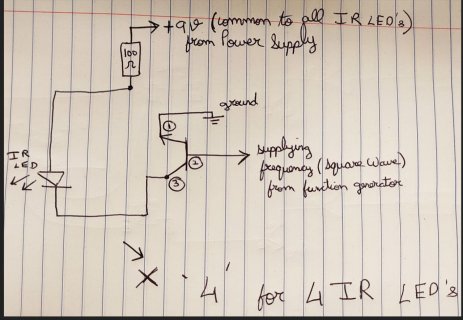 +9V (common to all IR LED's)
from Power Supply
100
Ω
ground
①
IR
LED
②
③
supplying
frequency (square wave)
from function generator
X '4' for 4 IR LED's